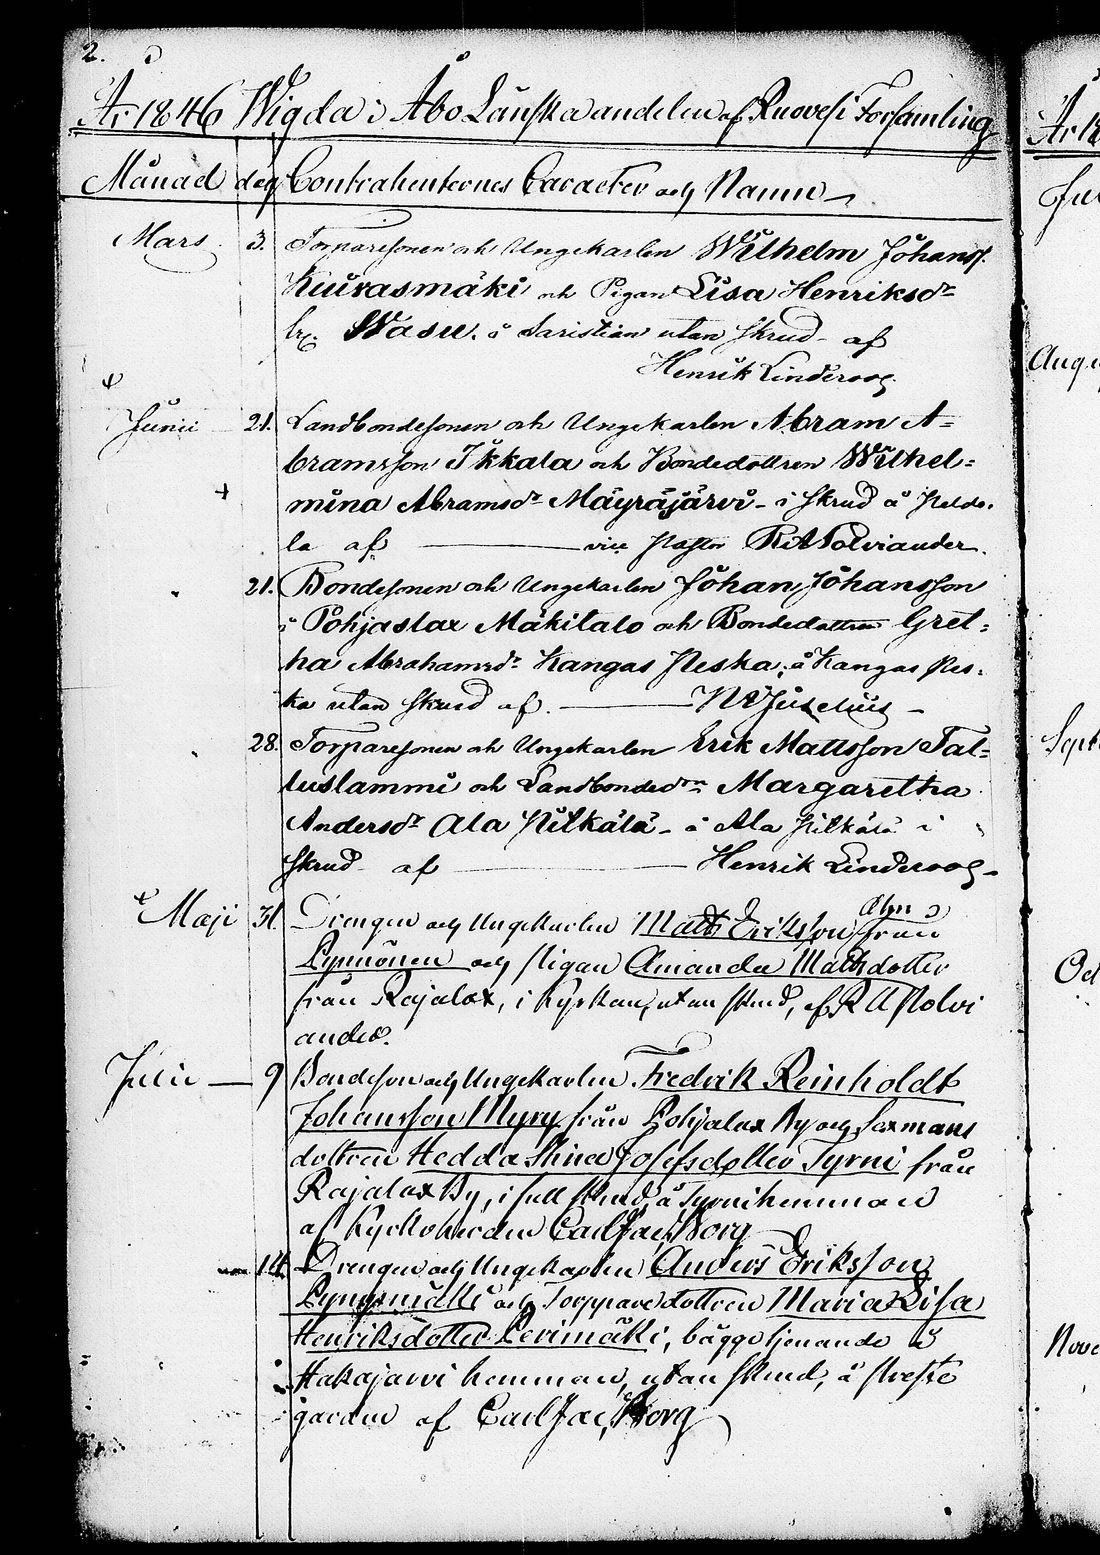 2.
År 1846 Wigda i Åbo Länska andelen af Ruovesi Församling
Månad dag Contrahenternes Caracter och Namn
Mars 3. Torparesonen och Ungekarlen Wilhelm Johanss.
Kuivasmäki och Pigan Lisa Henriksdr
Wasu. å utan skrud af
Henrik Linderoos.
Junii 21. Landbondesonen och Ungekarlen Abram A=
bramsson Ikkala och Bondedottren Wilhel=
mina Abramsdr Mäyräjärvi i skrud å Peldo.
la af vice Pastor R A Polviander.
21. Bondesonen och Ungekarlen Johan Johansson
i Pohjaslax Mäkitalo och Bondedottren Gret=
ha Abrahamsdr Kangas Peska, å Kangas Pes.
ka utan skrud af N Juselius
28. Torparesonen och Ungekarlen Erik Mattsson Tal=
luslammi och Landbondedrn Margaretha
Andersdr Ala Pilkälä å Ala Pilkälä i
skrud af Henrik Linderoos
Maji 31. Drengen och Ungekarlen Matts Eriksson från
Lynnönen och Pigan Amanda Mattsdotter
från Rajalax, i Kyrkan, utan skrud, af R A Polvi
ander.
Julii 9 Bondeson och Ungekarlen Fredrik Reinholdt
Johansson Myry från Pohjalax By och Sexmans
dottren Hedda Stina Josefsdotter Tyrni från
Rajalax By, i full skrud, å Tyrni hemman
af Kyrkoherden Carl Jac. Borg
14. Drengen och Ungekarlen Anders Eriksson
och Torppare dottren Maria Lisa
Henriksdotter Levimäki, bägge tjenande å
Hakajärvi hemman, utan skrud, å Preste
gården af Carl Jac. Borg
År 18
Augu
Sept
Oct
Nove